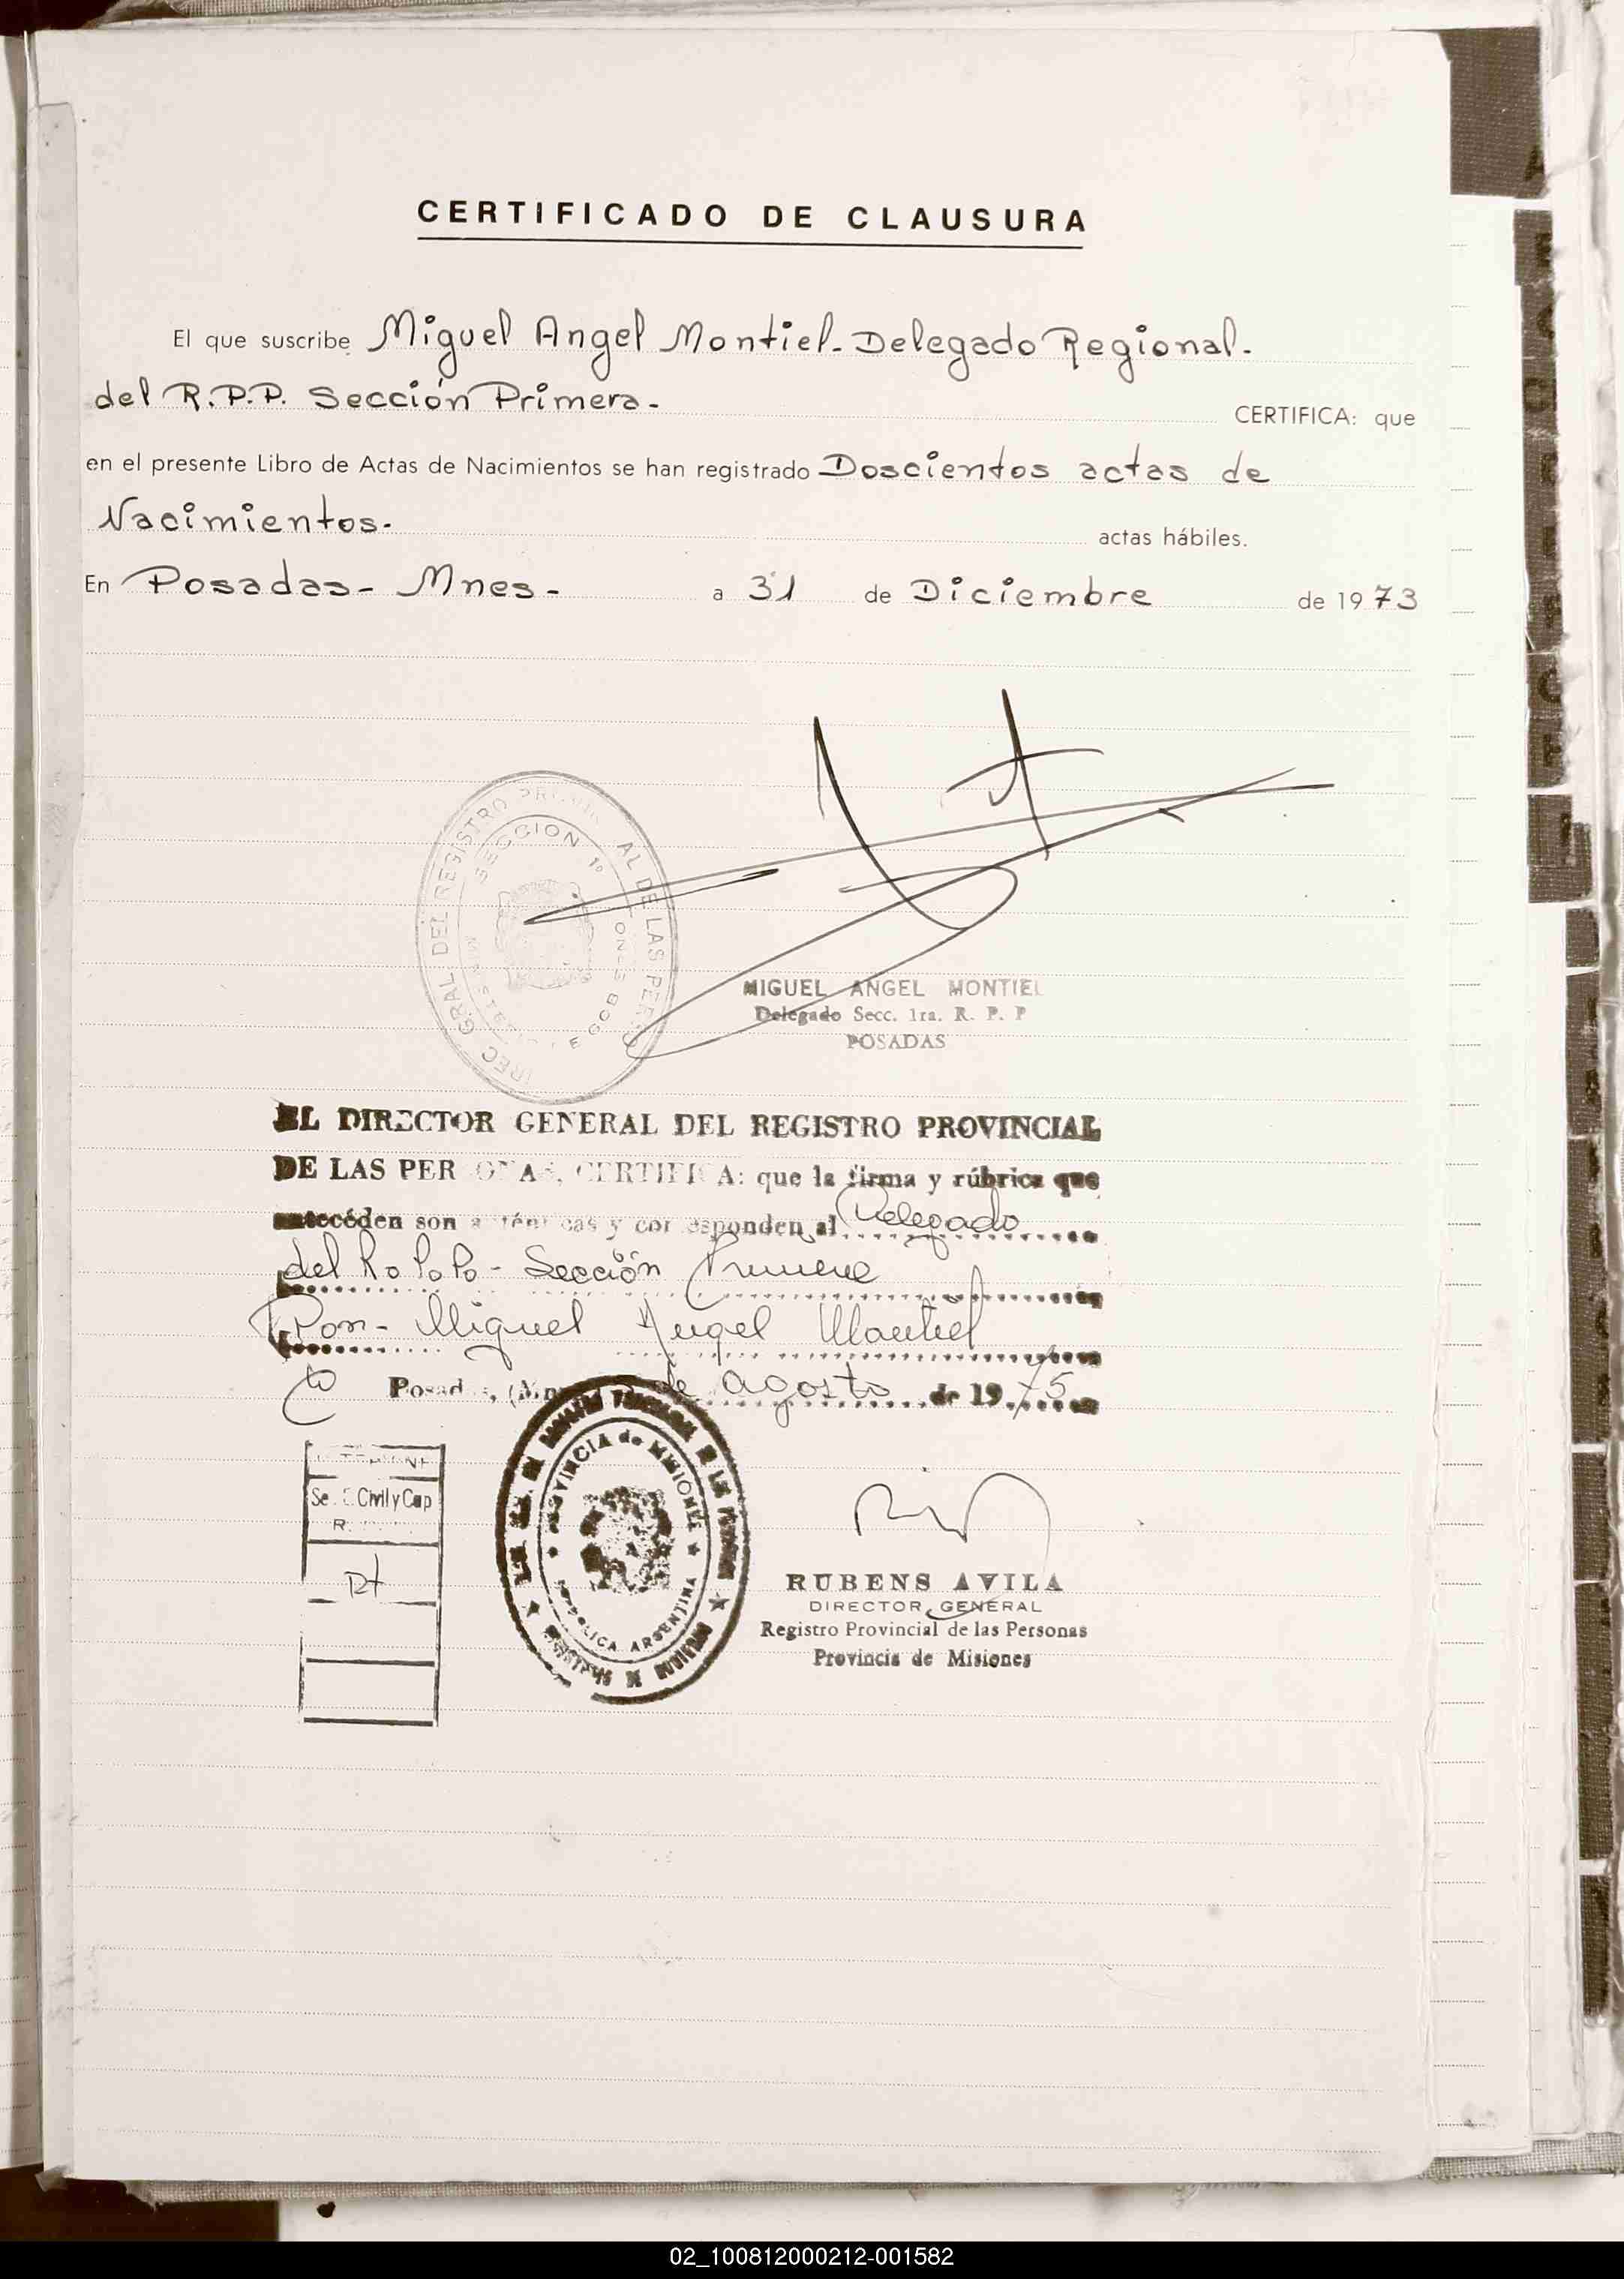 CERTIFICADO DE CLAUSURA
El que suscribe Miguel Angel Montiel-Delegado Regional.
del R.P.P. Sección Primera- CERTIFICA: que
en el presente Libro de Actas de Nacimientos se han registrado Doscientos actas de
Nacimientos- actas hábiles.
En Posadas- Mnes- a 31 de Diciembre de 1973
GRAL DEL REGISTRO AL DE LAS
SECCION 1º
MIGUEL ANGEL MONTIEL
Delegado Secc. 1ra. R. P. P
POSADAS
EL DIRECTOR GENERAL DEL REGISTRO PROVINCIAL
DE LAS PERSONAS, CERTIFICA: que la firma y rúbrica que
antecéden son auténticas y corresponden al Delegado
del R.P.P.- Sección Primera
Don- Miguel Angel Montiel
Posadas, (Mnes de agosto de 1975
Civil y Cap
PROVINCIA de MISIONES
REPUBLICA ARGENTINA
RUBENS AVILA
DIRECTOR GENERAL
Registro Provincial de las Personas
Provincia de Misiones
02_100812000212-001582